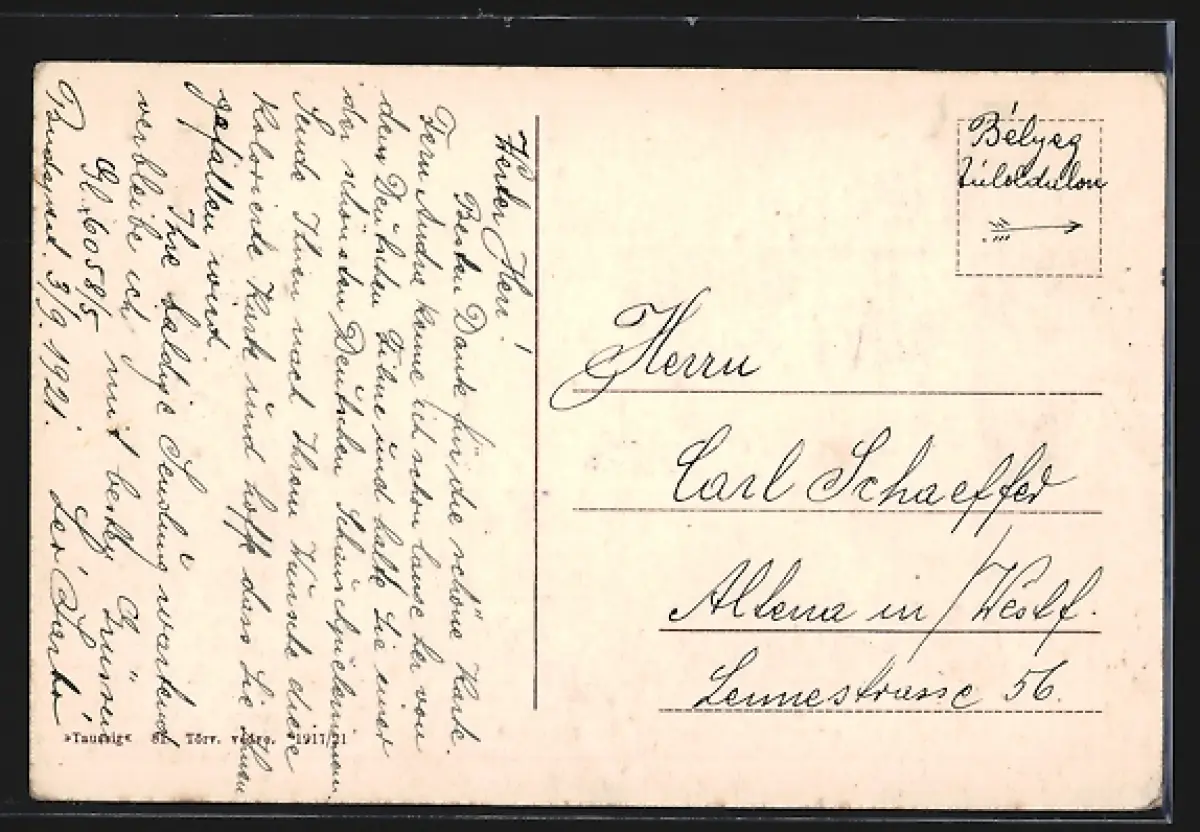 Werter Herr!
Besten Dank für die schöne Karte.
Fern Andra kenne ich schon lange her von
dem Deutschen Filme und halte Sie einer
der schönsten Deutschen Schauspielerinnen.
Sende Ihnen nach Ihrem Wunsche diese
Kolorierte Karte und hoffe dass Sie Ihnen
gefallen wird.
Ihre baldige Sendung erwartend
verbleibe ich mit besten Grüssen
Gl. 6058/5
Budapest. 3/9. 1921.
Bélyeg
túloldalon
Herrn
Carl Schaeffer
Altena in/Westf.
Lennestrasse 56.
»Taussig« Sz. Törv. védve. 1917/21